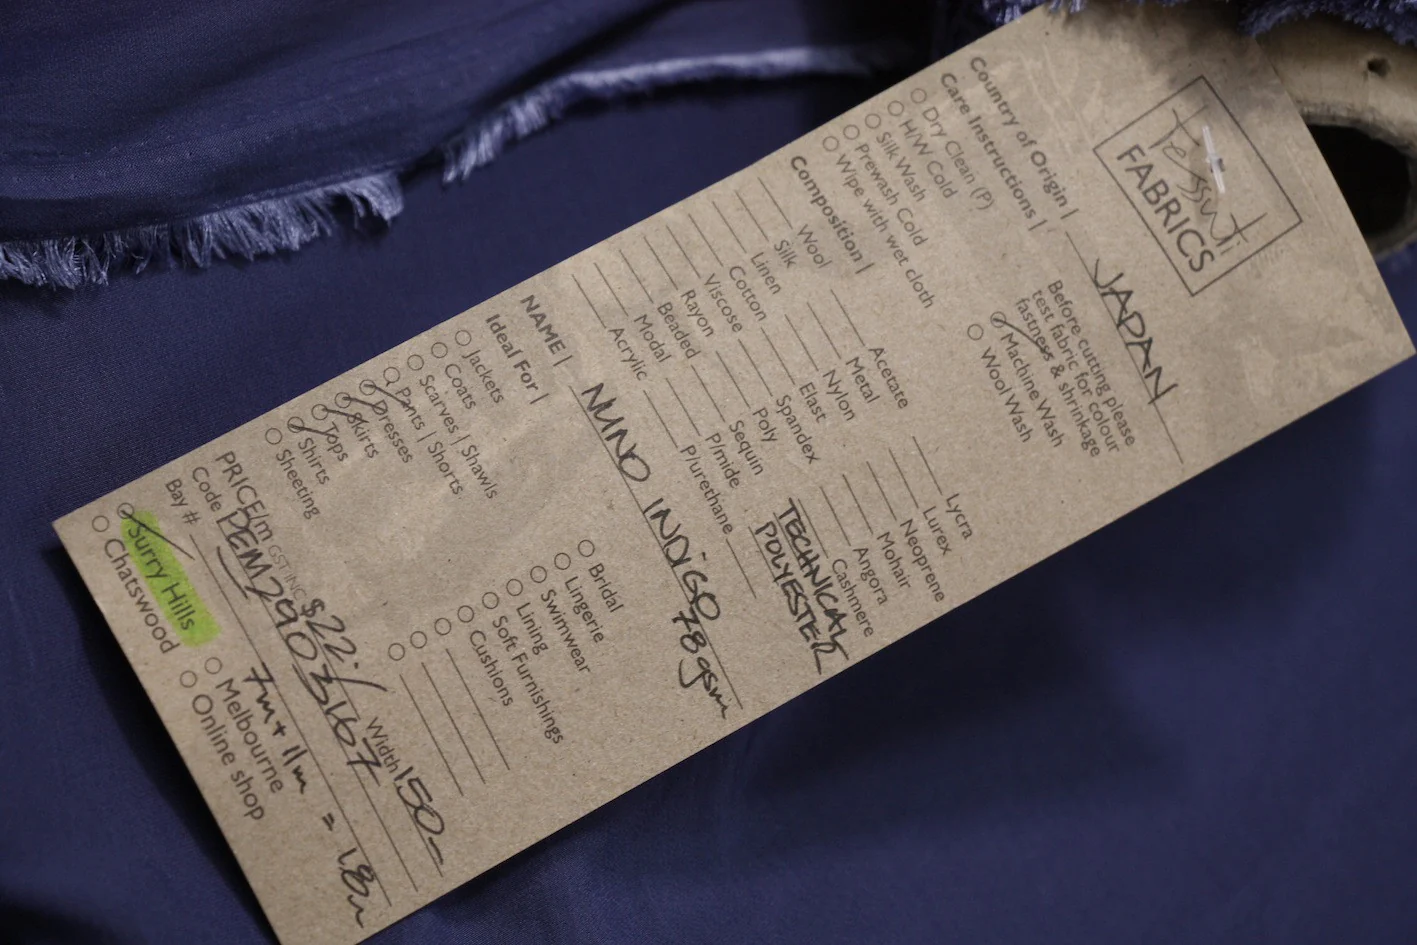 Tessuti
FABRICS
Country of Origin | JAPAN
Care Instructions |
Before cutting please
test fabric for colour
fastness & shrinkage
Dry Clean (P)
H/W Cold
Silk Wash
Prewash Cold
Wipe with wet cloth
Machine Wash
Wool Wash
Composition |
Wool
Silk
Linen
Cotton
Viscose
Rayon
Beaded
Modal
Acrylic
Acetate
Metal
Nylon
Elast
Spandex
Poly
Sequin
P/mide
P/urethane
Lycra
Lurex
Neoprene
Mohair
Angora
Cashmere
TECHNICAL
POLYESTER
NAME | NUNO INDiGO
78gsm
Ideal For |
Jackets
Coats
Scarves | Shawls
Pants | Shorts
Dresses
Skirts
Tops
Shirts
Sheeting
Bridal
Lingerie
Swimwear
Lining
Soft Furnishings
Cushions
PRICE/m GST INC $22.- Width 150-
Code PEM2903167
Bay # 7m + 11m = 18m
Surry Hills
Chatswood
Melbourne
Online shop